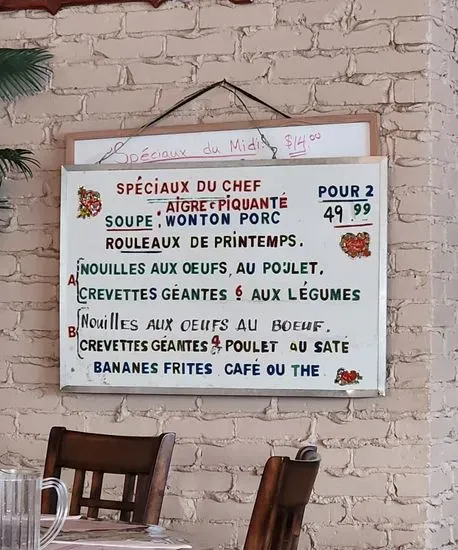 Spéciaux du Midi: $14.00
SPÉCIAUX DU CHEF POUR 2
AIGRE & PIQUANTÉ 49.99
SOUPE: WONTON PORC
ROULEAUX DE PRINTEMPS.
A NOUILLES AUX OEUFS, AU POULET.
CREVETTES GÉANTES 6 AUX LÉGUMES
B NOUILLES AUX OEUFS AU BOEUF.
CREVETTES GÉANTES 4 POULET AU SATÉ
BANANES FRITES CAFÉ OU THE